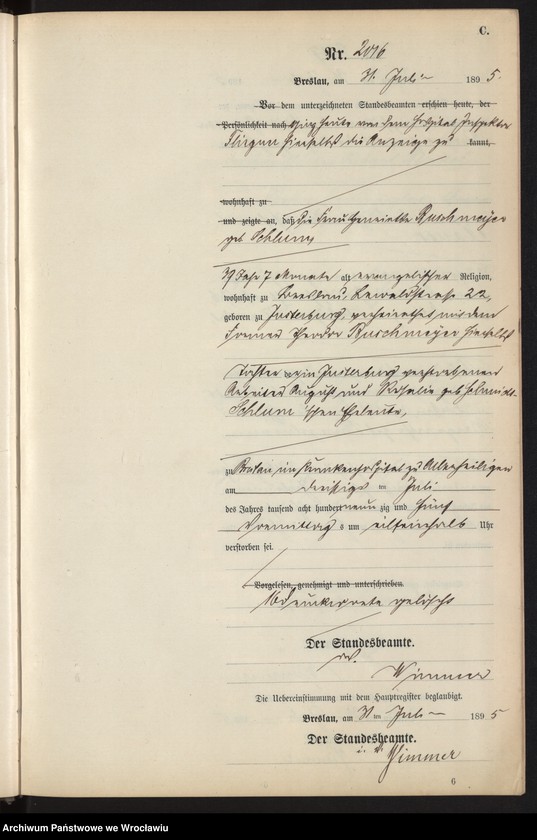 C.
Nr. 2016
Breslau, am 31. Juli 1895.
Vor dem unterzeichneten Standesbeamten erschien heute, der
Persönlichkeit nach ging heute von dem Hospital Inspektor
die Anzeige zu kannt,
wohnhaft zu
und zeigte an, daß die Frau Ruschmeyer
geb Schlum
39 Jahr 7 Monate alt, evangelischer Religion,
wohnhaft zu Breslau, 22,
geboren zu Insterburg, verheirathet mit dem
Theodor Ruschmeyer hierselbst
Tochter der in Insterburg verstorbenen
Arbeiter August und Rosalie geb
Schlum'schen Eheleute,
zu Breslau, im Krankenhospital zu Allerheiligen
am dreißigsten Juli
des Jahres tausend acht hundert neunzig und fünf
Vormittags um elfeinhalb Uhr
verstorben sei.
Vorgelesen, genehmigt und unterschrieben.
gelöscht
Der Standesbeamte.
i. V.
Wimmer
Die Uebereinstimmung mit dem Hauptregister beglaubigt.
Breslau, am 31ten Juli 1895
Der Standesbeamte.
i. V. Wimmer
6
Archiwum Państwowe we Wrocławiu